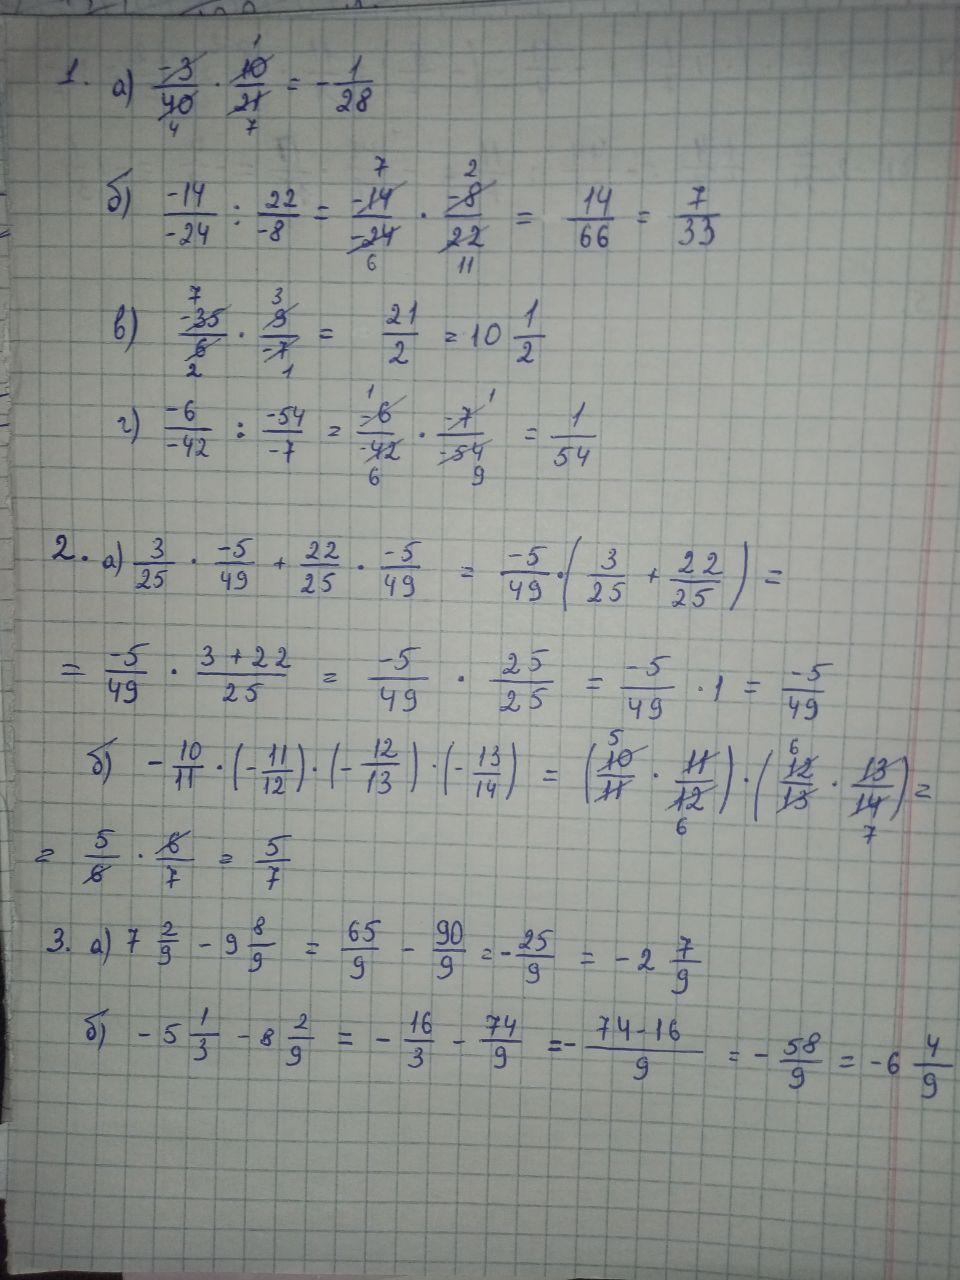 1. а) -3/40 · 10/21 = - 1/28
1
4 7
б) -14/-24 : 22/-8 = -14/-24 · -8/22 = 14/66 = 7/33
7 2
6 11
в) -35/6 · 9/-7 = 21/2 = 10 1/2
7 3
2 1
г) -6/-42 : -54/-7 = -6/-42 · -7/-54 = 1/54
1 1
6 9
2. а) 3/25 · -5/49 + 22/25 · -5/49 = -5/49 · (3/25 + 22/25) =
= -5/49 · 3+22/25 = -5/49 · 25/25 = -5/49 · 1 = -5/49
б) - 10/11 · (- 11/12) · (- 12/13) · (- 13/14) = (10/11 · 11/12) · (12/13 · 13/14) =
5 6
6 7
= 5/6 · 6/7 = 5/7
3. а) 7 2/9 - 9 8/9 = 65/9 - 90/9 = - 25/9 = - 2 7/9
б) - 5 1/3 - 8 2/9 = - 16/3 - 74/9 = - 74-16/9 = - 58/9 = -6 4/9